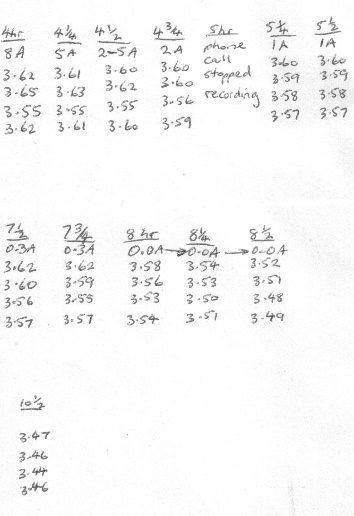 4hr 4¼ 4½ 4¾ 5hr 5¼ 5½
8A 5A 2-5A 2A phone 1A 1A
3.62 3.61 3.60 3.60 call 3.60 3.60
3.65 3.63 3.62 3.60 stopped 3.59 3.59
3.55 3.55 3.55 3.56 recording 3.58 3.58
3.62 3.61 3.60 3.59 3.57 3.57
7½ 7¾ 8hr 8¼ 8½
0.3A 0.3A 0.0A → 0.0A → 0.0A
3.62 3.62 3.58 3.54 3.52
3.60 3.59 3.56 3.53 3.51
3.56 3.55 3.53 3.50 3.48
3.57 3.57 3.54 3.51 3.49
10½
3.47
3.46
3.44
3.46